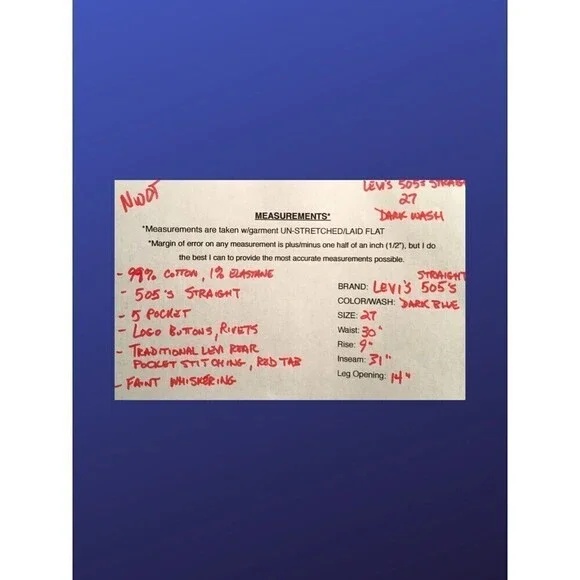 NWOT
LEVI'S 505's STRAIGHT
27
DARK WASH
MEASUREMENTS*
*Measurements are taken w/garment UN-STRETCHED/LAID FLAT
*Margin of error on any measurement is plus/minus one half of an inch (1/2"), but I do
the best I can to provide the most accurate measurements possible.
- 99% COTTON, 1% ELASTANE
- 505's STRAIGHT
- 5 POCKET
- LOGO BUTTONS, RIVETS
- TRADITIONAL LEVI REAR
POCKET STITCHING, RED TAB
- FAINT WHISKERING
STRAIGHT
BRAND: LEVI'S 505's
COLOR/WASH: DARK BLUE
SIZE: 27
Waist: 30"
Rise: 9"
Inseam: 31"
Leg Opening: 14"